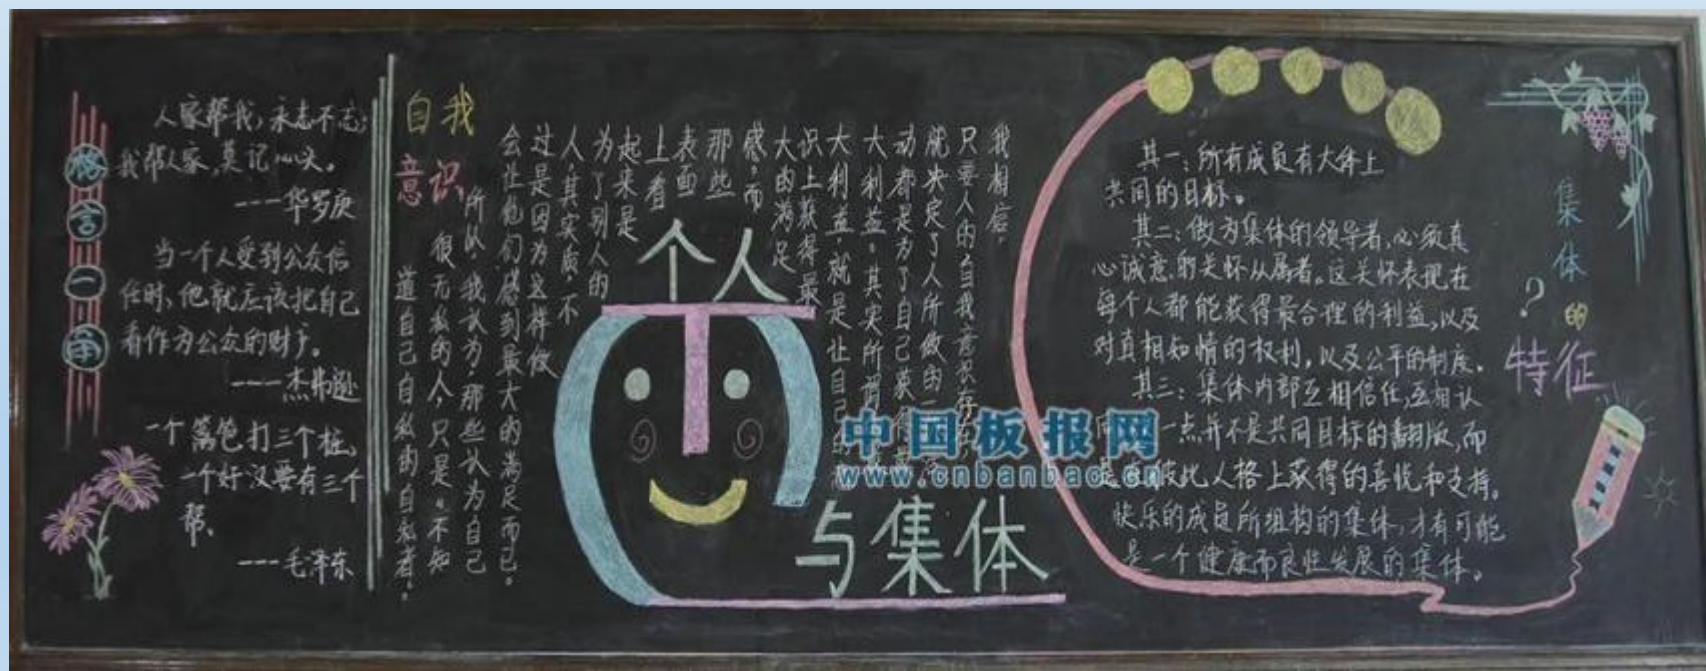 格言一角
人家帮我，永志不忘；
我帮人家，莫记心头。
---华罗庚
当一个人受到公众信
任时，他就应该把自己
看作为公众的财产。
---杰弗逊
一个篱笆打三个桩，
一个好汉要有三个
帮。
---毛泽东
自我
意识
我相信，
只要人的自我意识存
就决定了人所做的一
动都是为了自己获得
大利益。其实所谓
大利益，就是让自己的
识上获得最
大的满足
感，而
那些
表面
上看
起来是
为了别人的
人，其实质，不
过是因为这样做
会让他们感到最大的满足而已。
所以，我认为，那些认为自己
很无私的人，只是“不知
道自己自私的自私者”。
个人
与集体
中国板报网
www.cnbanbao.cn
集体的
特征？
其一：所有成员有大体上
共同的目标。
其二：做为集体的领导者，必须真
心诚意的关怀从属者。这关怀表现在
每个人都能获得最合理的利益，以及
对真相知情的权利，以及公平的制度。
其三：集体内部互相信任，互相认
同 一点并不是共同目标的翻版，而
是 彼此人格上获得的喜悦和支持。
快乐的成员所组构的集体，才有可能
是一个健康而良性发展的集体。